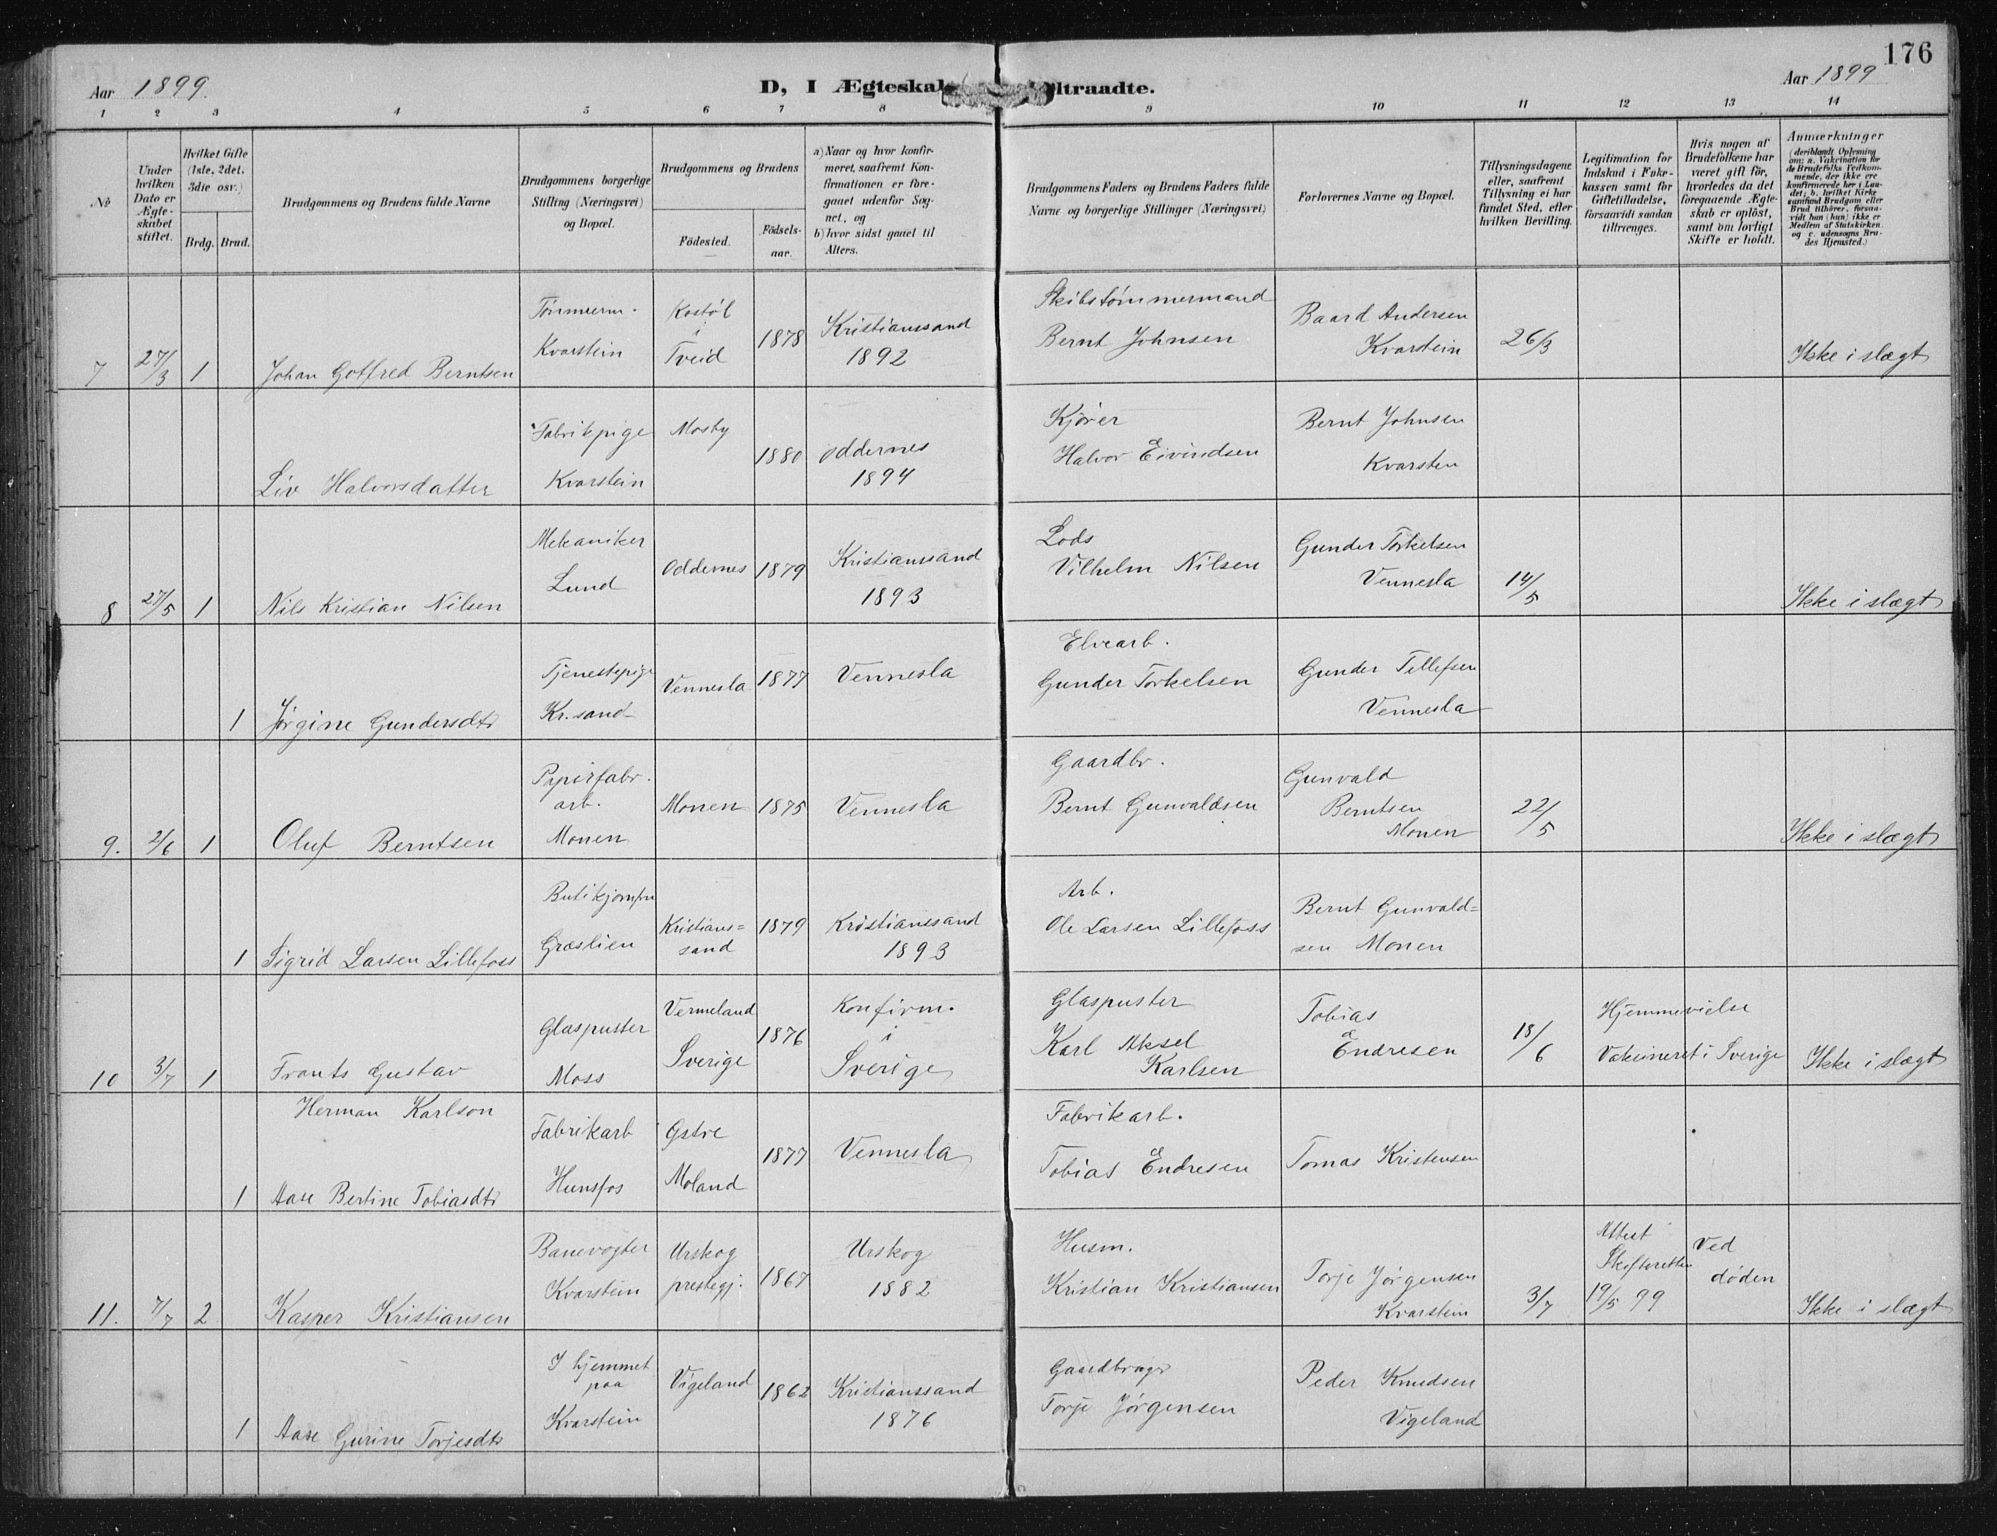 176
Aar 1899.
D, I Ægteskab
ltraadte.
Aar 1899
1 2 3 4 5 6 7 8 9 10 11 12 13 14
No
Under hvilken Dato er Ægteskabet stiftet.
Hvilket Gifte (1ste, 2det. 3die osv.)
Brdg. Brud.
Brudgommens og Brudens fulde Navne
Brudgommens borgerlige Stilling (Næringsvei) og Bopæl.
Brudgommens og Brudens
Födested.
Födselsaar.
a) Naar og hvor konfirmeret, saafremt Konfirmationen er foregaaet udenfor Sognet, og
b) hvor sidst gaaet til Alters.
Brudgommens Faders og Brudens Faders fulde Navne og borgerlige Stillinger (Næringsvei)
Forlovernes Navne og Bopæl.
Tillysningsdagene eller, saafremt Tillysning ei har fundet Sted, efter hvilken Bevilling.
Legitimation for Indskud i Enkekassen samt for Giftetilladelse, forsaavidt saadan tiltrænges.
Hvis nogen af Brudefolkene har været gift för, hvorledes da det foregaaende Ægteskab er oplöst, samt om lovligt Skifte er holdt.
Anmærkninger
(deriblandt Oplysning om: a. Vakcination for de Brudefolks Vedkommende, der ikke ere konfirmerede her i Landet; b. hvilket Kirkesamfund Brudgom eller Brud tilhörer, forsaavidt han (hun) ikke er Medlem af Statskirken. og c. udensogns Brudes Hjemsted.)
7 27/3 1 Johan Gotfred Berntsen
Tömmerm. Kvarstein
Kostöl i Tveid
1878
Kristianssand 1892
Skibstömmermand Bernt Johnsen
Baard Andersen Kvarstein
26/3
Ikke i slægt
Liv Halvorsdatter
Fabrikpige Kvarstein
Mosby
1880
Oddernes 1894
Kjörer Halvor Eivindsen
Bernt Johnsen Kvarsten
8 27/5 1 Nils Kristian Nilsen
Mekaniker Lund
Oddernes
1879
Kristianssand 1893
Lods Vilhelm Nilsen
Gunder Torkelsen Vennesla
14/5
Ikke i slægt
1 Jørgine Gundersdtr
Tjenestepige Kr.sand
Vennesla
1877
Vennesla
Elvearb. Gunder Torkelsen
Gunder Tellefsen Vennesla
9. 2/6 1 Oluf Berntsen
Papirfabr. arb. Monen
Monen
1875
Vennesla
Gaardbr. Bernt Gunvaldsen
Gunvald Berntsen Monen
22/5
Ikke i slægt
1 Sigrid Larsen Lillefoss
Butikjomfru Græslien
Kristianssand
1879
Kristianssand 1893
Arb. Ole Larsen Lillefoss
Bernt Gunvaldsen Monen
10 3/7 1 Frants Gustav Herman Karlson
Glaspuster Moss
Vermeland Sverige
1876
Konfirm. i Sverige
Glaspuster Karl Aksel Karlsen
Tobias Endresen
18/6
Hjemmevielse
Vakcineret i Sverige
Ikke i slægt
1 Aase Bertine Tobiasdtr
Fabrikarb Hunsfos
Östre Moland
1877
Vennesla
Fabrikarb. Tobias Endresen
Tomas Kristensen
11. 7/7 2 Kasper Kristiansen
Banevogter Kvarstein
Urskog prestegj.
1867
Urskog 1882
Husm. Kristian Kristiansen
Torje Jørgensen Kvarstein
3/7
Attest Skifteretten 19/5 99
Ved döden
Ikke i slægt
1 Aase Gurine Torjesdtr
I hjemmet paa Kvarstein
Vigeland
1862
Kristianssand 1876
Gaardbruger Torje Jörgensen
Peder Knudsen Vigeland